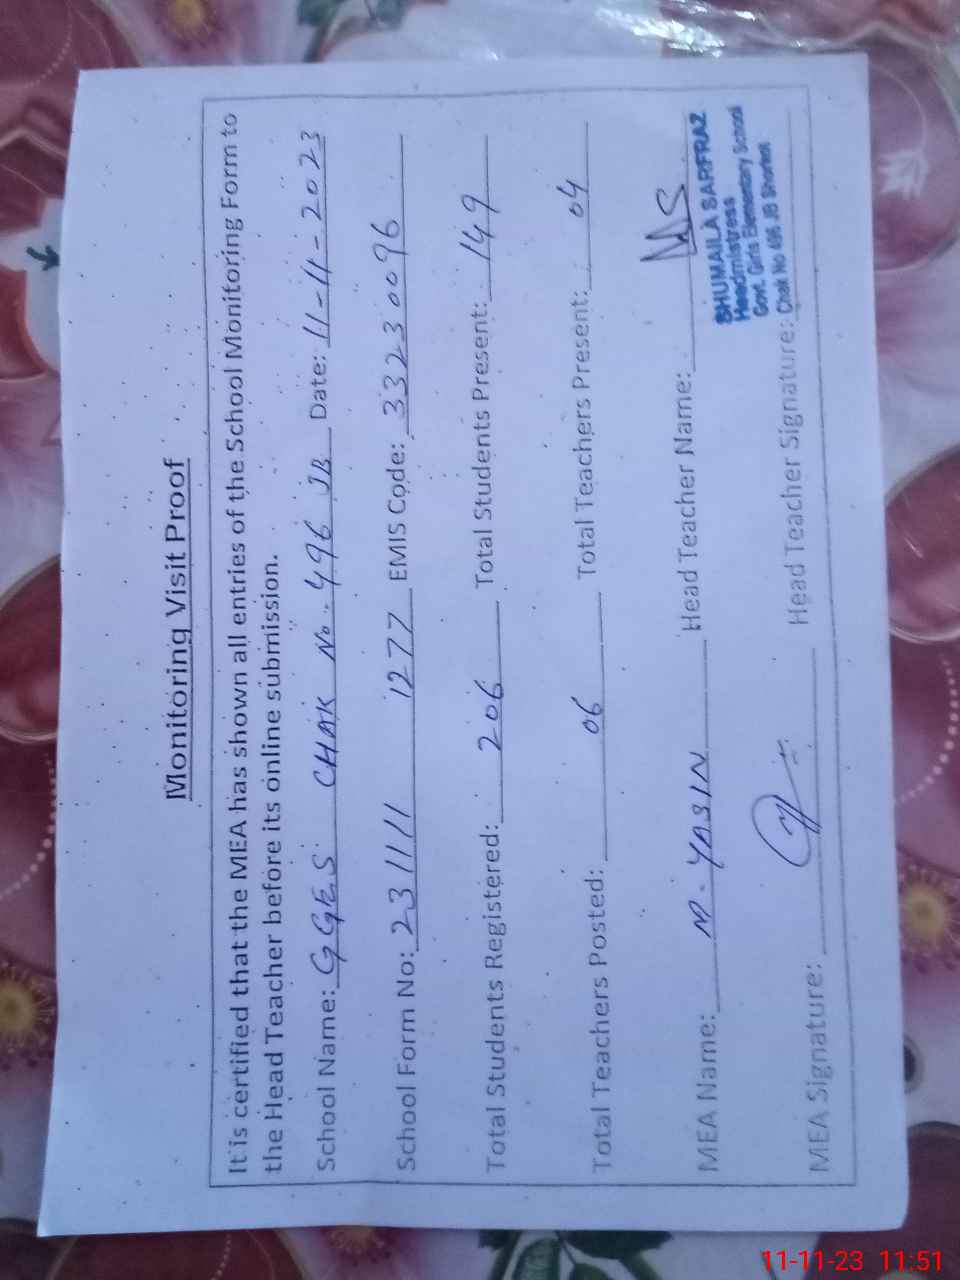 Monitoring Visit Proof
It is certified that the MEA has shown all entries of the School Monitoring Form to
the Head Teacher before its online submission.
School Name: GGES CHAK No. 496 JB Date: 11-11-2023
School Form No: 231111 1277 EMIS Code: 33230096
Total Students Registered: 206 Total Students Present: 149
Total Teachers Posted: 06 Total Teachers Present: 04
MEA Name: M. YASIN Head Teacher Name:
SHUMAILA SARFRAZ
Headmistress
Govt. Girls Elementary School
Chak No 496 JB Shorkot
MEA Signature: Head Teacher Signature:
11-11-23 11:51